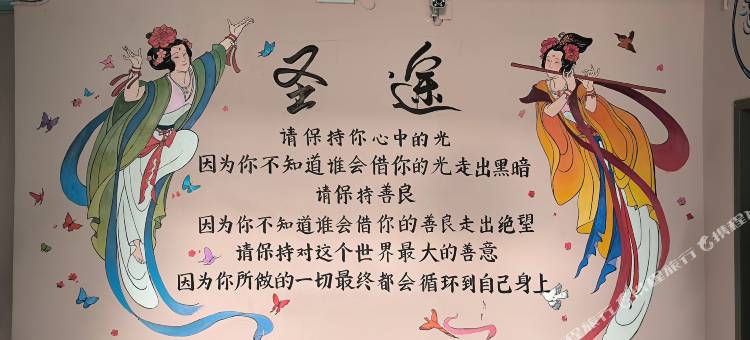 圣途
请保持你心中的光
因为你不知道谁会借你的光走出黑暗
请保持善良
因为你不知道谁会借你的善良走出绝望
请保持对这个世界最大的善意
因为你所做的一切最终都会循环到自己身上
携程旅行